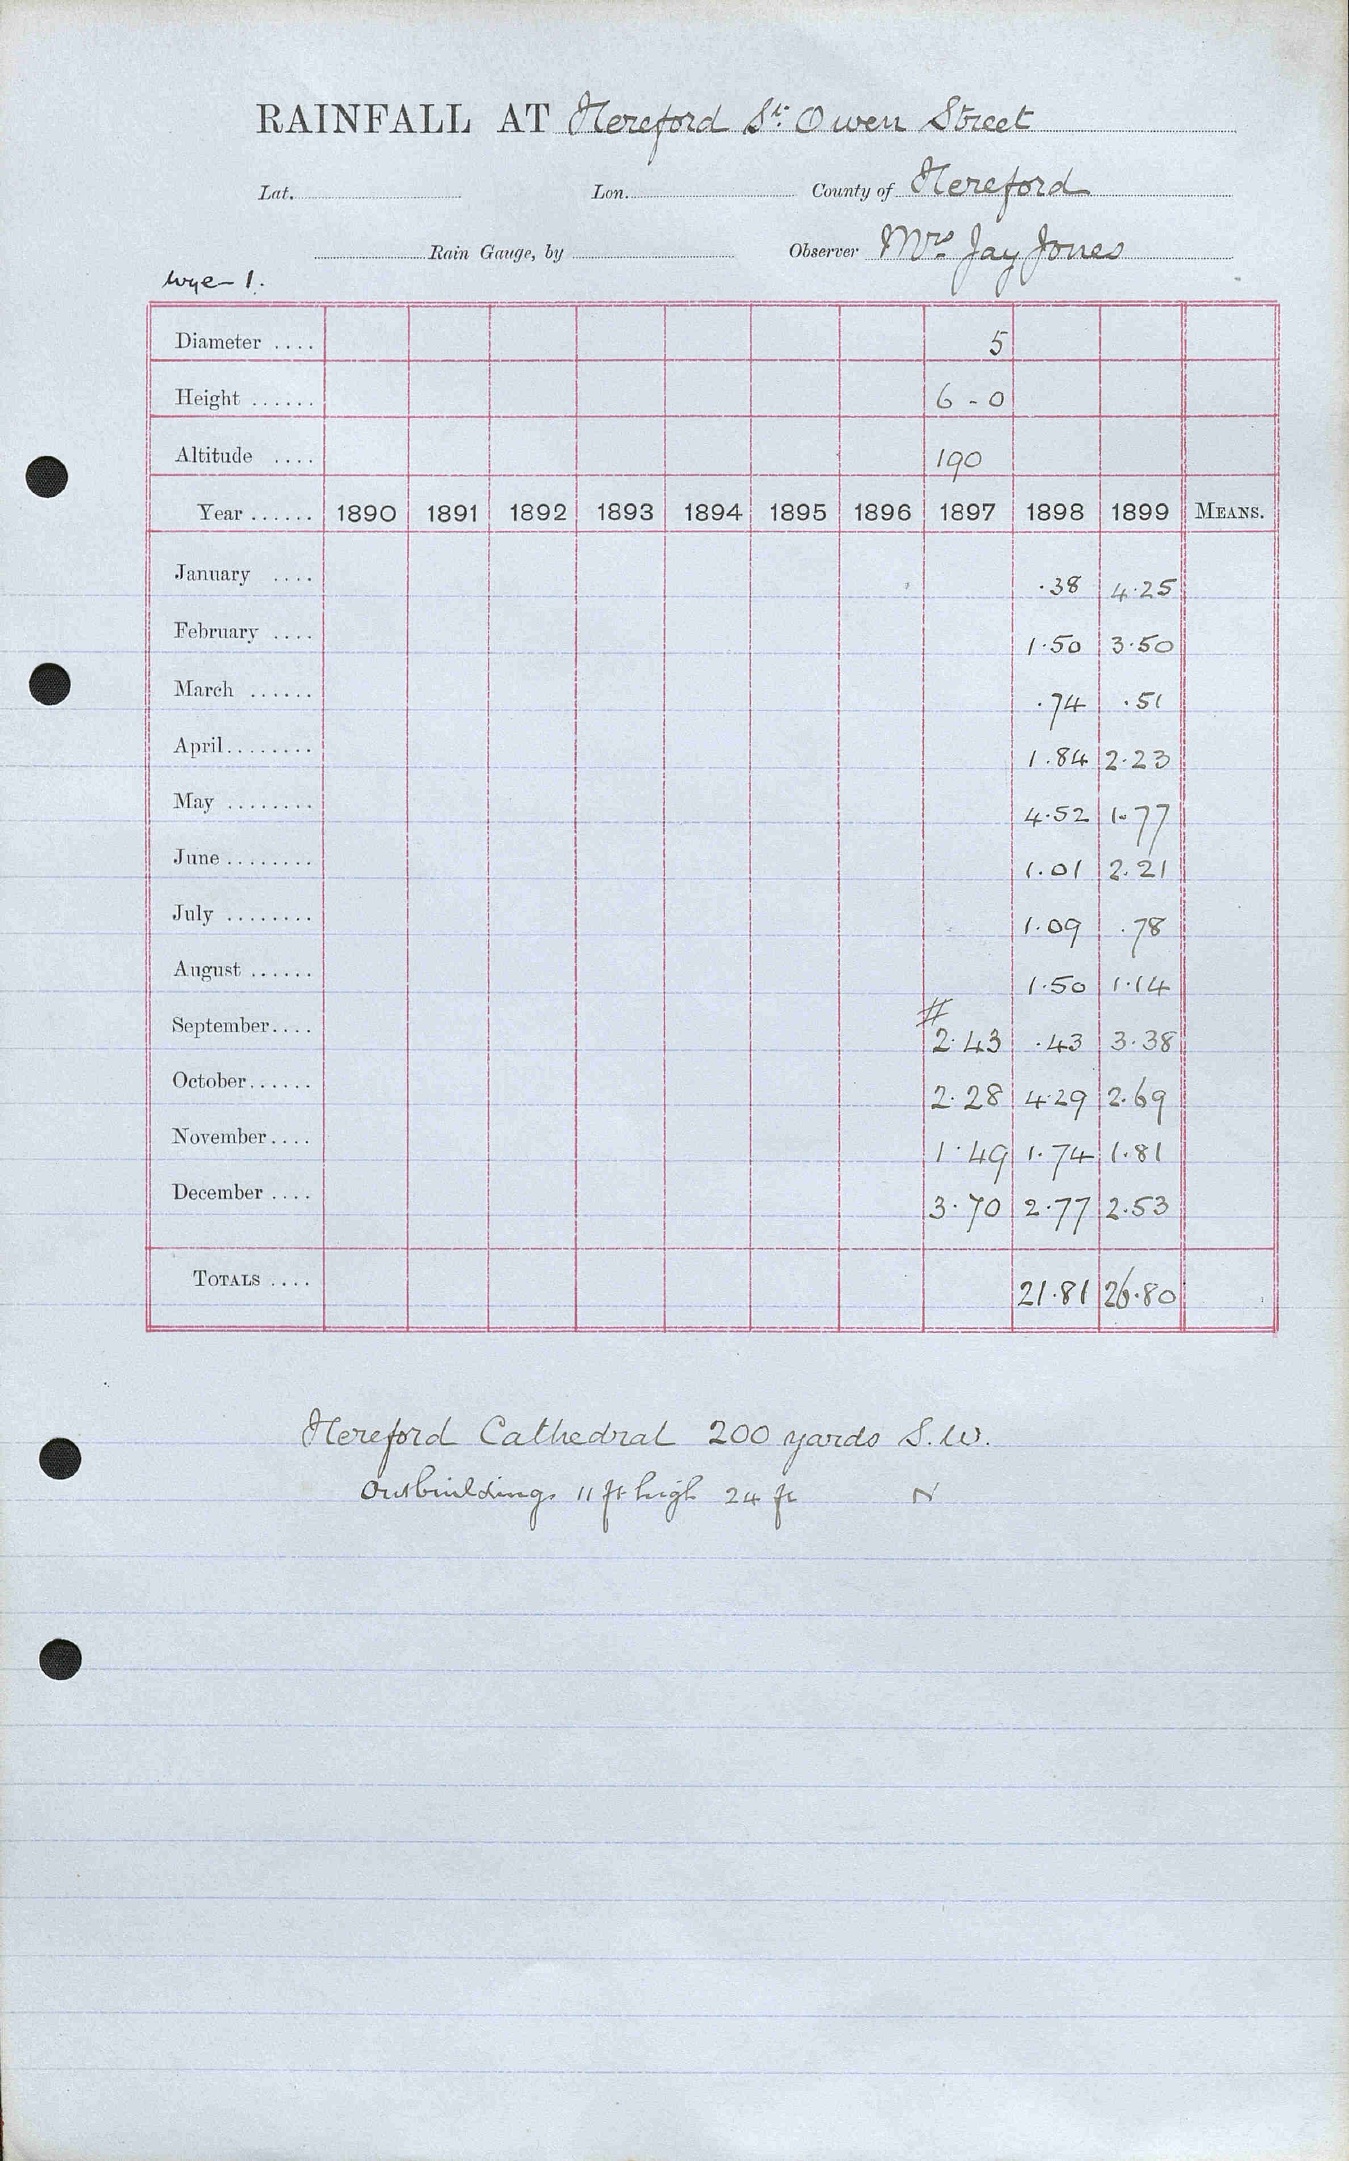 RAINFALL AT Hereford St. Owen Street
Lat. Lon. County of Hereford
Rain Gauge, by Observer Mrs. Jay Jones
Wye 1.
Diameter .... 5
Height ...... 6 - 0
Altitude .... 190
Year ...... 1890 1891 1892 1893 1894 1895 1896 1897 1898 1899 MEANS.
January .... .38 4.25
February .... 1.50 3.50
March ...... .74 .51
April........ 1.84 2.23
May ........ 4.52 1.77
June ........ 1.01 2.21
July ........ 1.09 .78
August ...... 1.50 1.14
#
September.... 2.43 .43 3.38
October...... 2.28 4.29 2.69
November.... 1.49 1.74 1.81
December .... 3.70 2.77 2.53
TOTALS .... 21.81 26.80
Hereford Cathedral 200 yards S.W.
Outbuildings 11 ft high 24 ft N